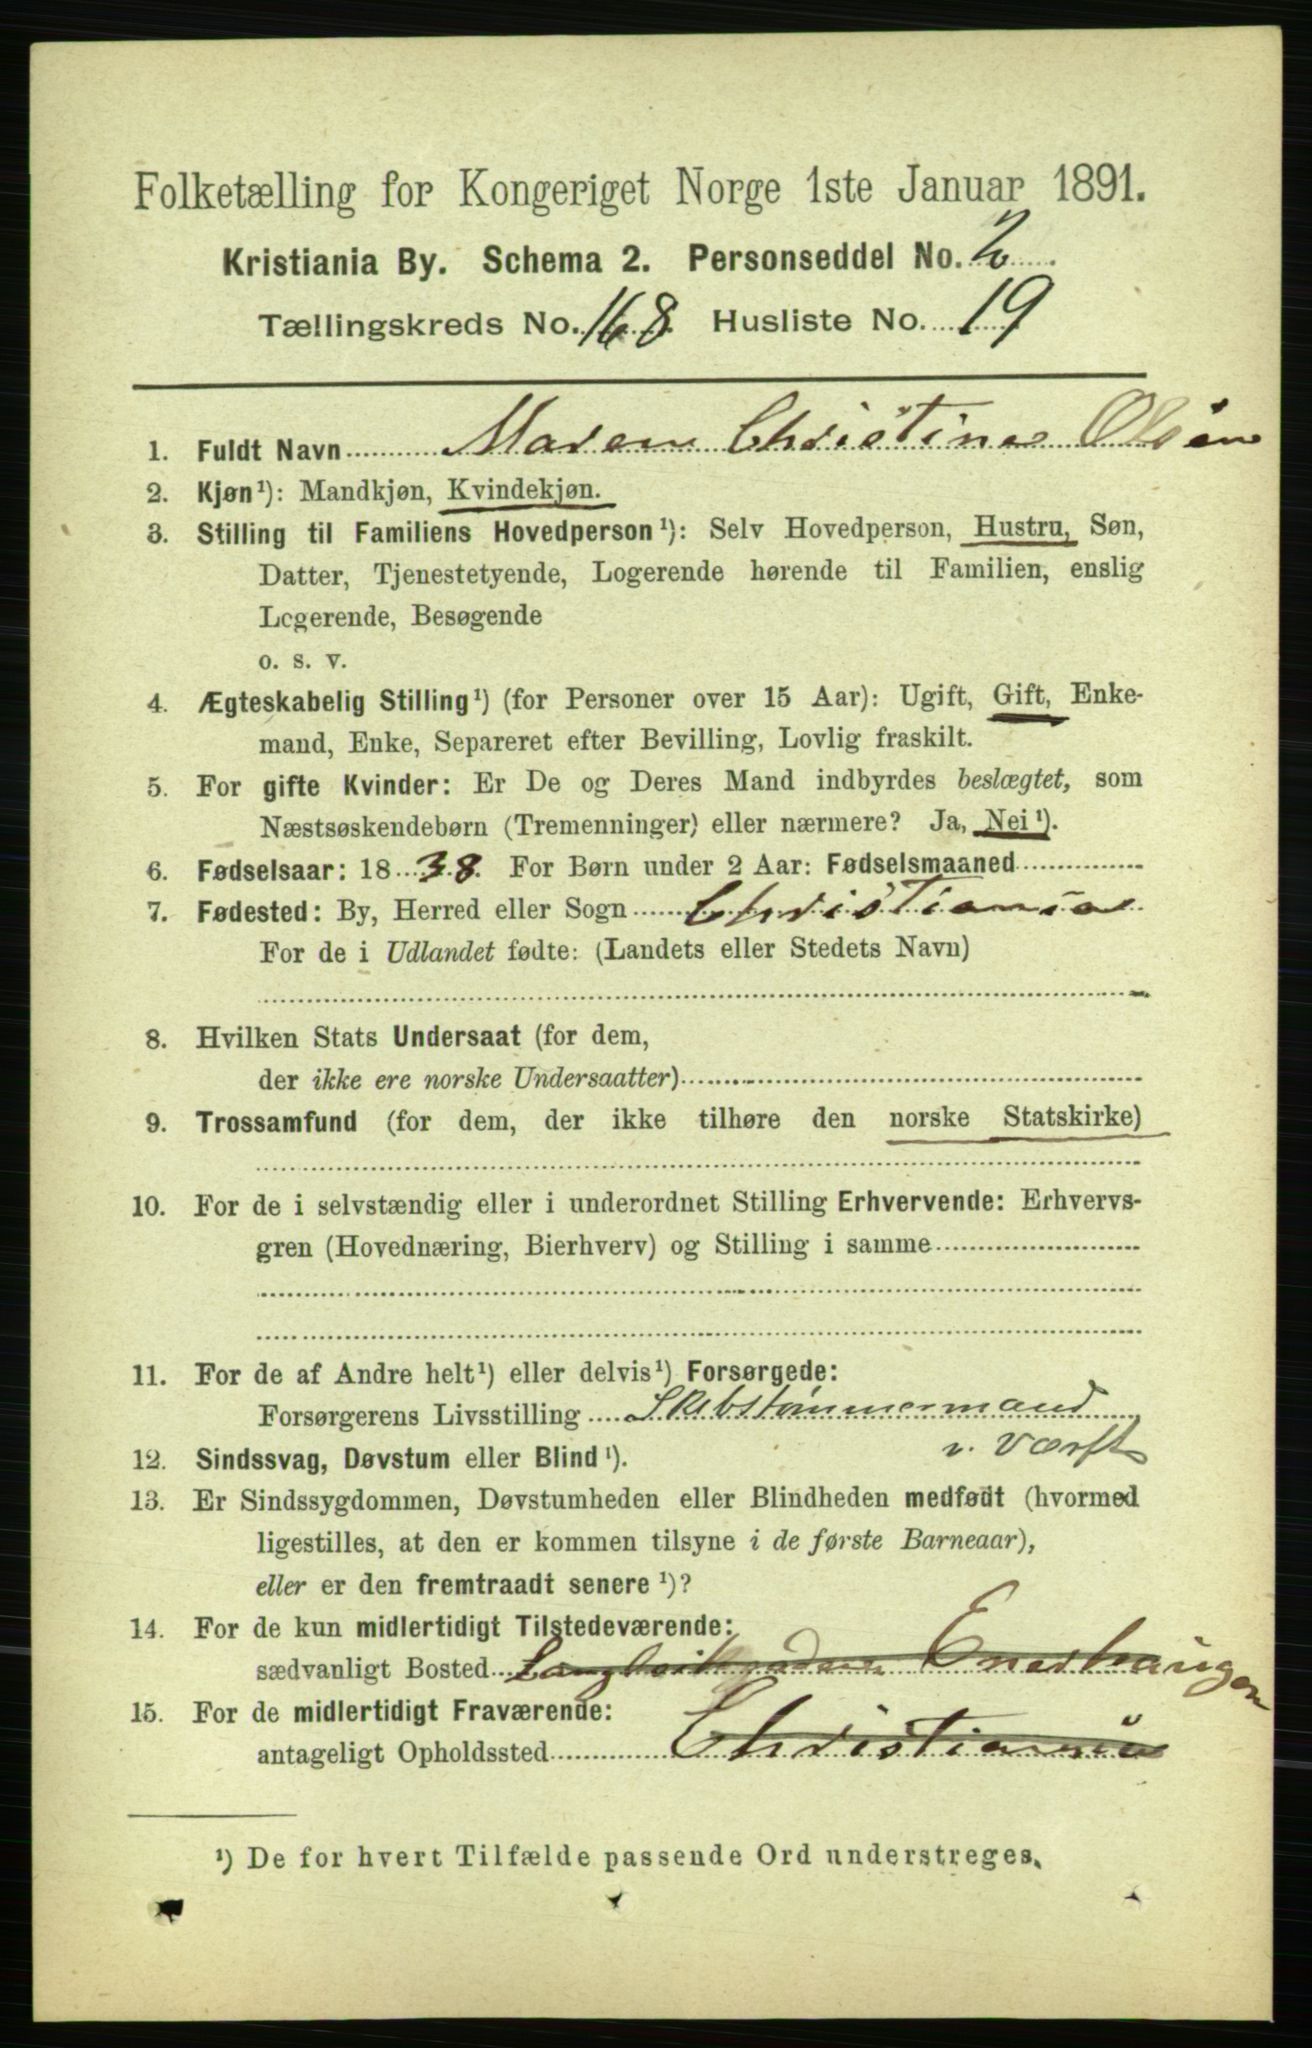 Folketælling for Kongeriget Norge 1ste Januar 1891.
Kristiania By. Schema 2. Personseddel No. 2
Tællingskreds No. 168. Husliste No. 19
1. Fuldt Navn Maren Christine Olsen
2. Kjøn¹): Mandkjøn, Kvindekjøn.
3. Stilling til Familiens Hovedperson¹): Selv Hovedperson, Hustru, Søn,
Datter, Tjenestetyende, Logerende hørende til Familien, enslig
Logerende, Besøgende
o. s. v.
4. Ægteskabelig Stilling¹) (for Personer over 15 Aar): Ugift, Gift, Enke-
mand, Enke, Separeret efter Bevilling, Lovlig fraskilt.
5. For gifte Kvinder: Er De og Deres Mand indbyrdes beslægtet, som
Næstsøskendebørn (Tremenninger) eller nærmere? Ja, Nei¹).
6. Fødselsaar: 1838. For Børn under 2 Aar: Fødselsmaaned
7. Fødested: By, Herred eller Sogn Christiania
For de i Udlandet fødte: (Landets eller Stedets Navn)
8. Hvilken Stats Undersaat (for dem,
der ikke ere norske Undersaatter)
9. Trossamfund (for dem, der ikke tilhøre den norske Statskirke)
10. For de i selvstændig eller i underordnet Stilling Erhvervende: Erhvervs-
gren (Hovednæring, Bierhverv) og Stilling i samme
11. For de af Andre helt¹) eller delvis¹) Forsørgede:
Forsørgerens Livsstilling Skibstømmermand
v. Værft
12. Sindssvag, Døvstum eller Blind¹).
13. Er Sindssygdommen, Døvstumheden eller Blindheden medfødt (hvormed
ligestilles, at den er kommen tilsyne i de første Barneaar),
eller er den fremtraadt senere¹)?
14. For de kun midlertidigt Tilstedeværende:
sædvanligt Bosted Enerhaugen
15. For de midlertidigt Fraværende:
antageligt Opholdssted Christiania
¹) De for hvert Tilfælde passende Ord understreges.